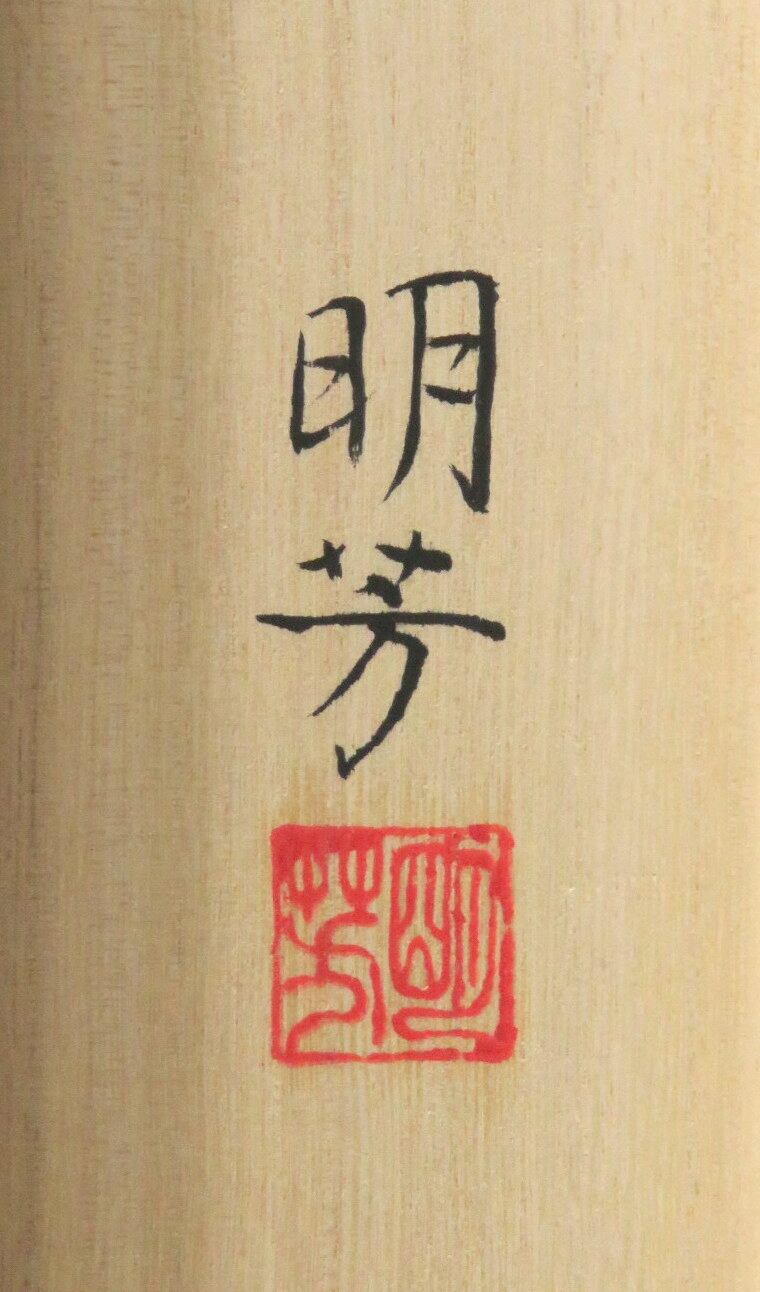 明芳
明芳